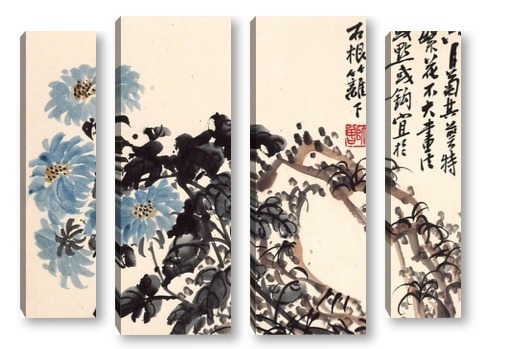 月菊其葉特
繁花不大畫法
或點或鈎宜於
石根籬下